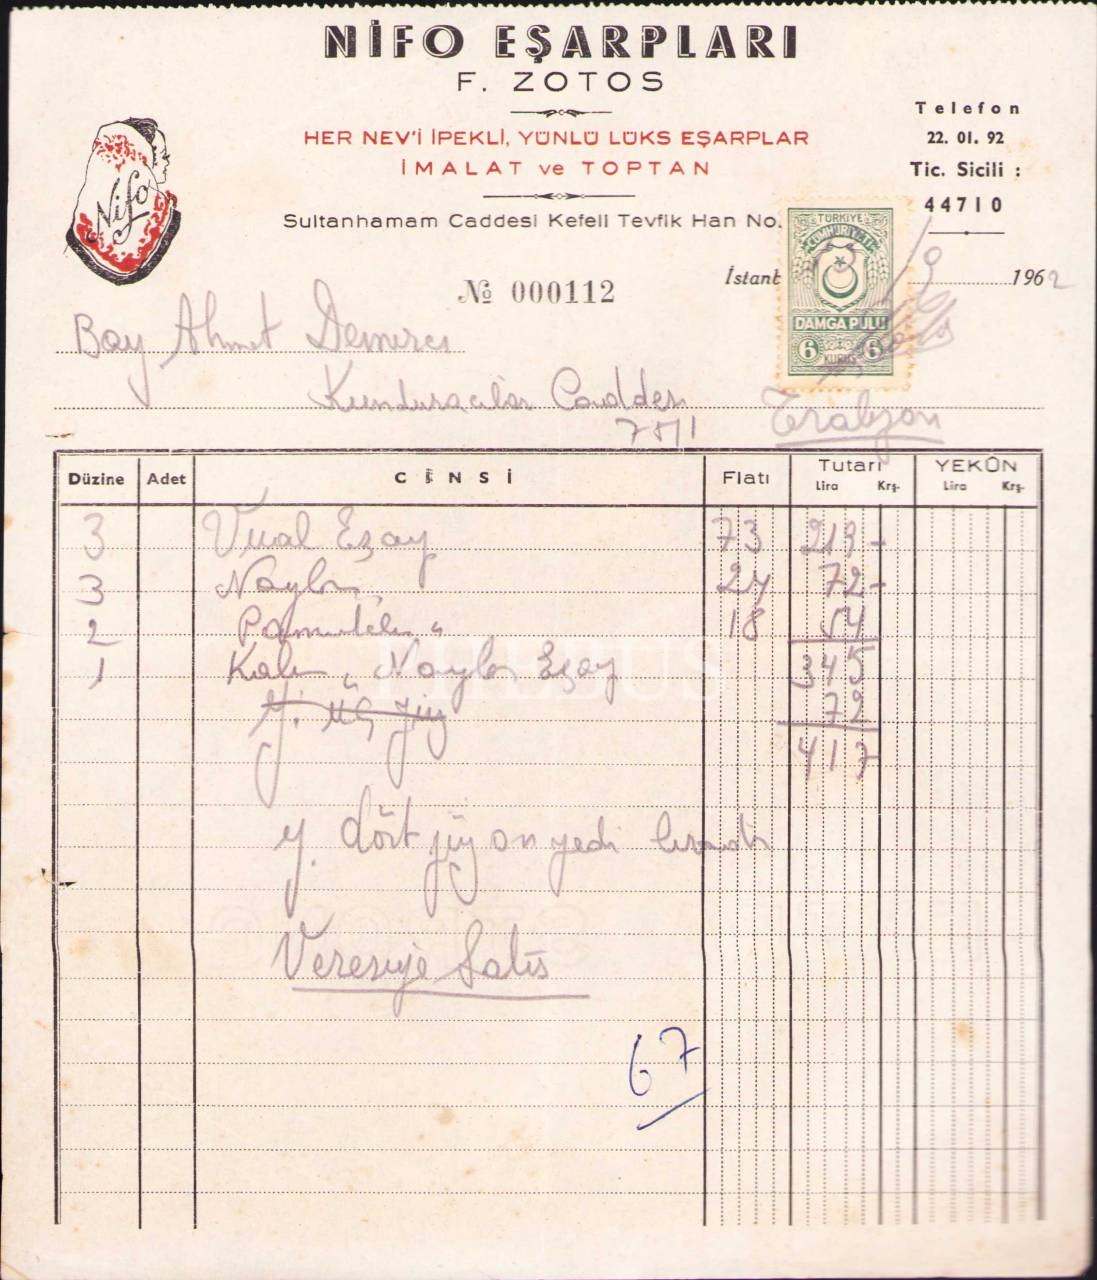 NİFO EŞARPLARI
F. ZOTOS
HER NEV'İ İPEKLİ, YÜNLÜ LÜKS EŞARPLAR
İMALAT ve TOPTAN
Sultanhamam Caddesi Kefeli Tevfik Han No.
Telefon
22. 01. 92
Tic. Sicili :
44710
Nifo
TÜRKİYE
CUMHURİYETİ
DAMGA PULU
6 KURUŞ 6
№ 000112
İstanb 9 1962
Bay Ahmet Demirci
Kunduracılar Caddesi
75/1 Trabzon
Düzine Adet CİNSİ Fiatı Tutarı YEKÛN
Lira Krş. Lira Krş.
3 Vual Eşay 73 219 -
3 Naylon " 24 72 -
2 Pamuklu " 18 54
1 Kalın " Naylon Eşay 345
Y. üç yüz 72
417
Y. dört yüz on yedi liradır
Veresiye Satış
67
PHEBUS